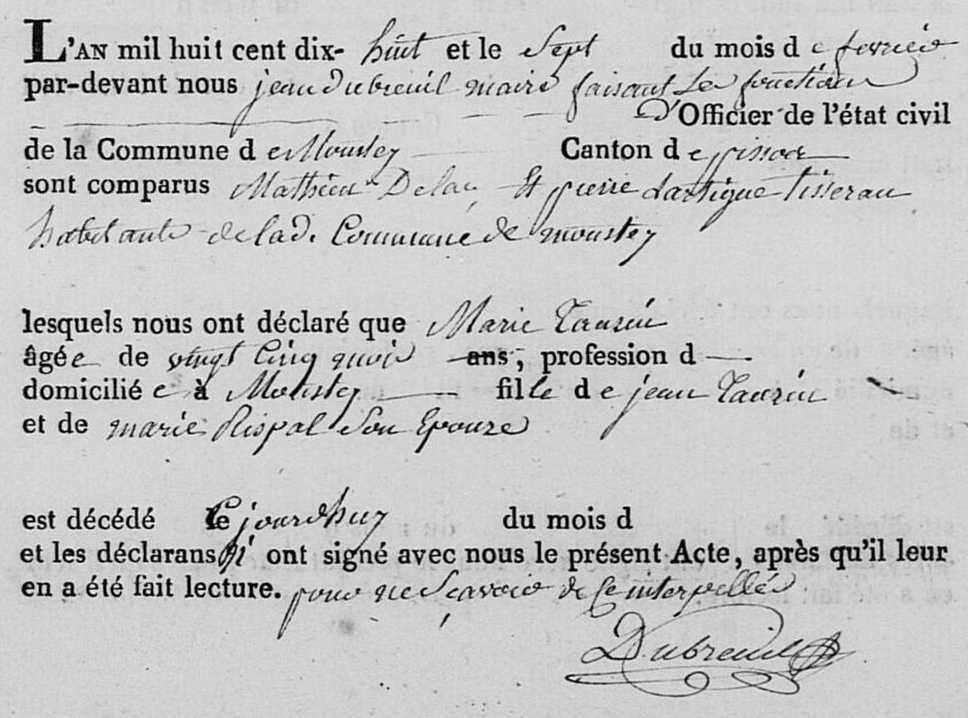 L'AN mil huit cent dix-huit et le Sept du mois de fevrier
par-devant nous jean Dubreuil maire faisant les fonctions
D'Officier de l'état civil
de la Commune de Moustey Canton de pissos
sont comparus Mathieu Et pierre dartigue tisseran
habitants de lad. Commune de moustey
lesquels nous ont déclaré que Marie Tauzin
âgée de vingt Cinq ans, profession d
domicilié e à Moustey fille de jean Tauzin
et de marie Rispal Son Epouze
est décédé Ce jourdhuy du mois d
et les déclarans ni ont signé avec nous le présent Acte, après qu'il leur
en a été fait lecture. pour ne Scavoir de Ce interpellés
Dubreuil